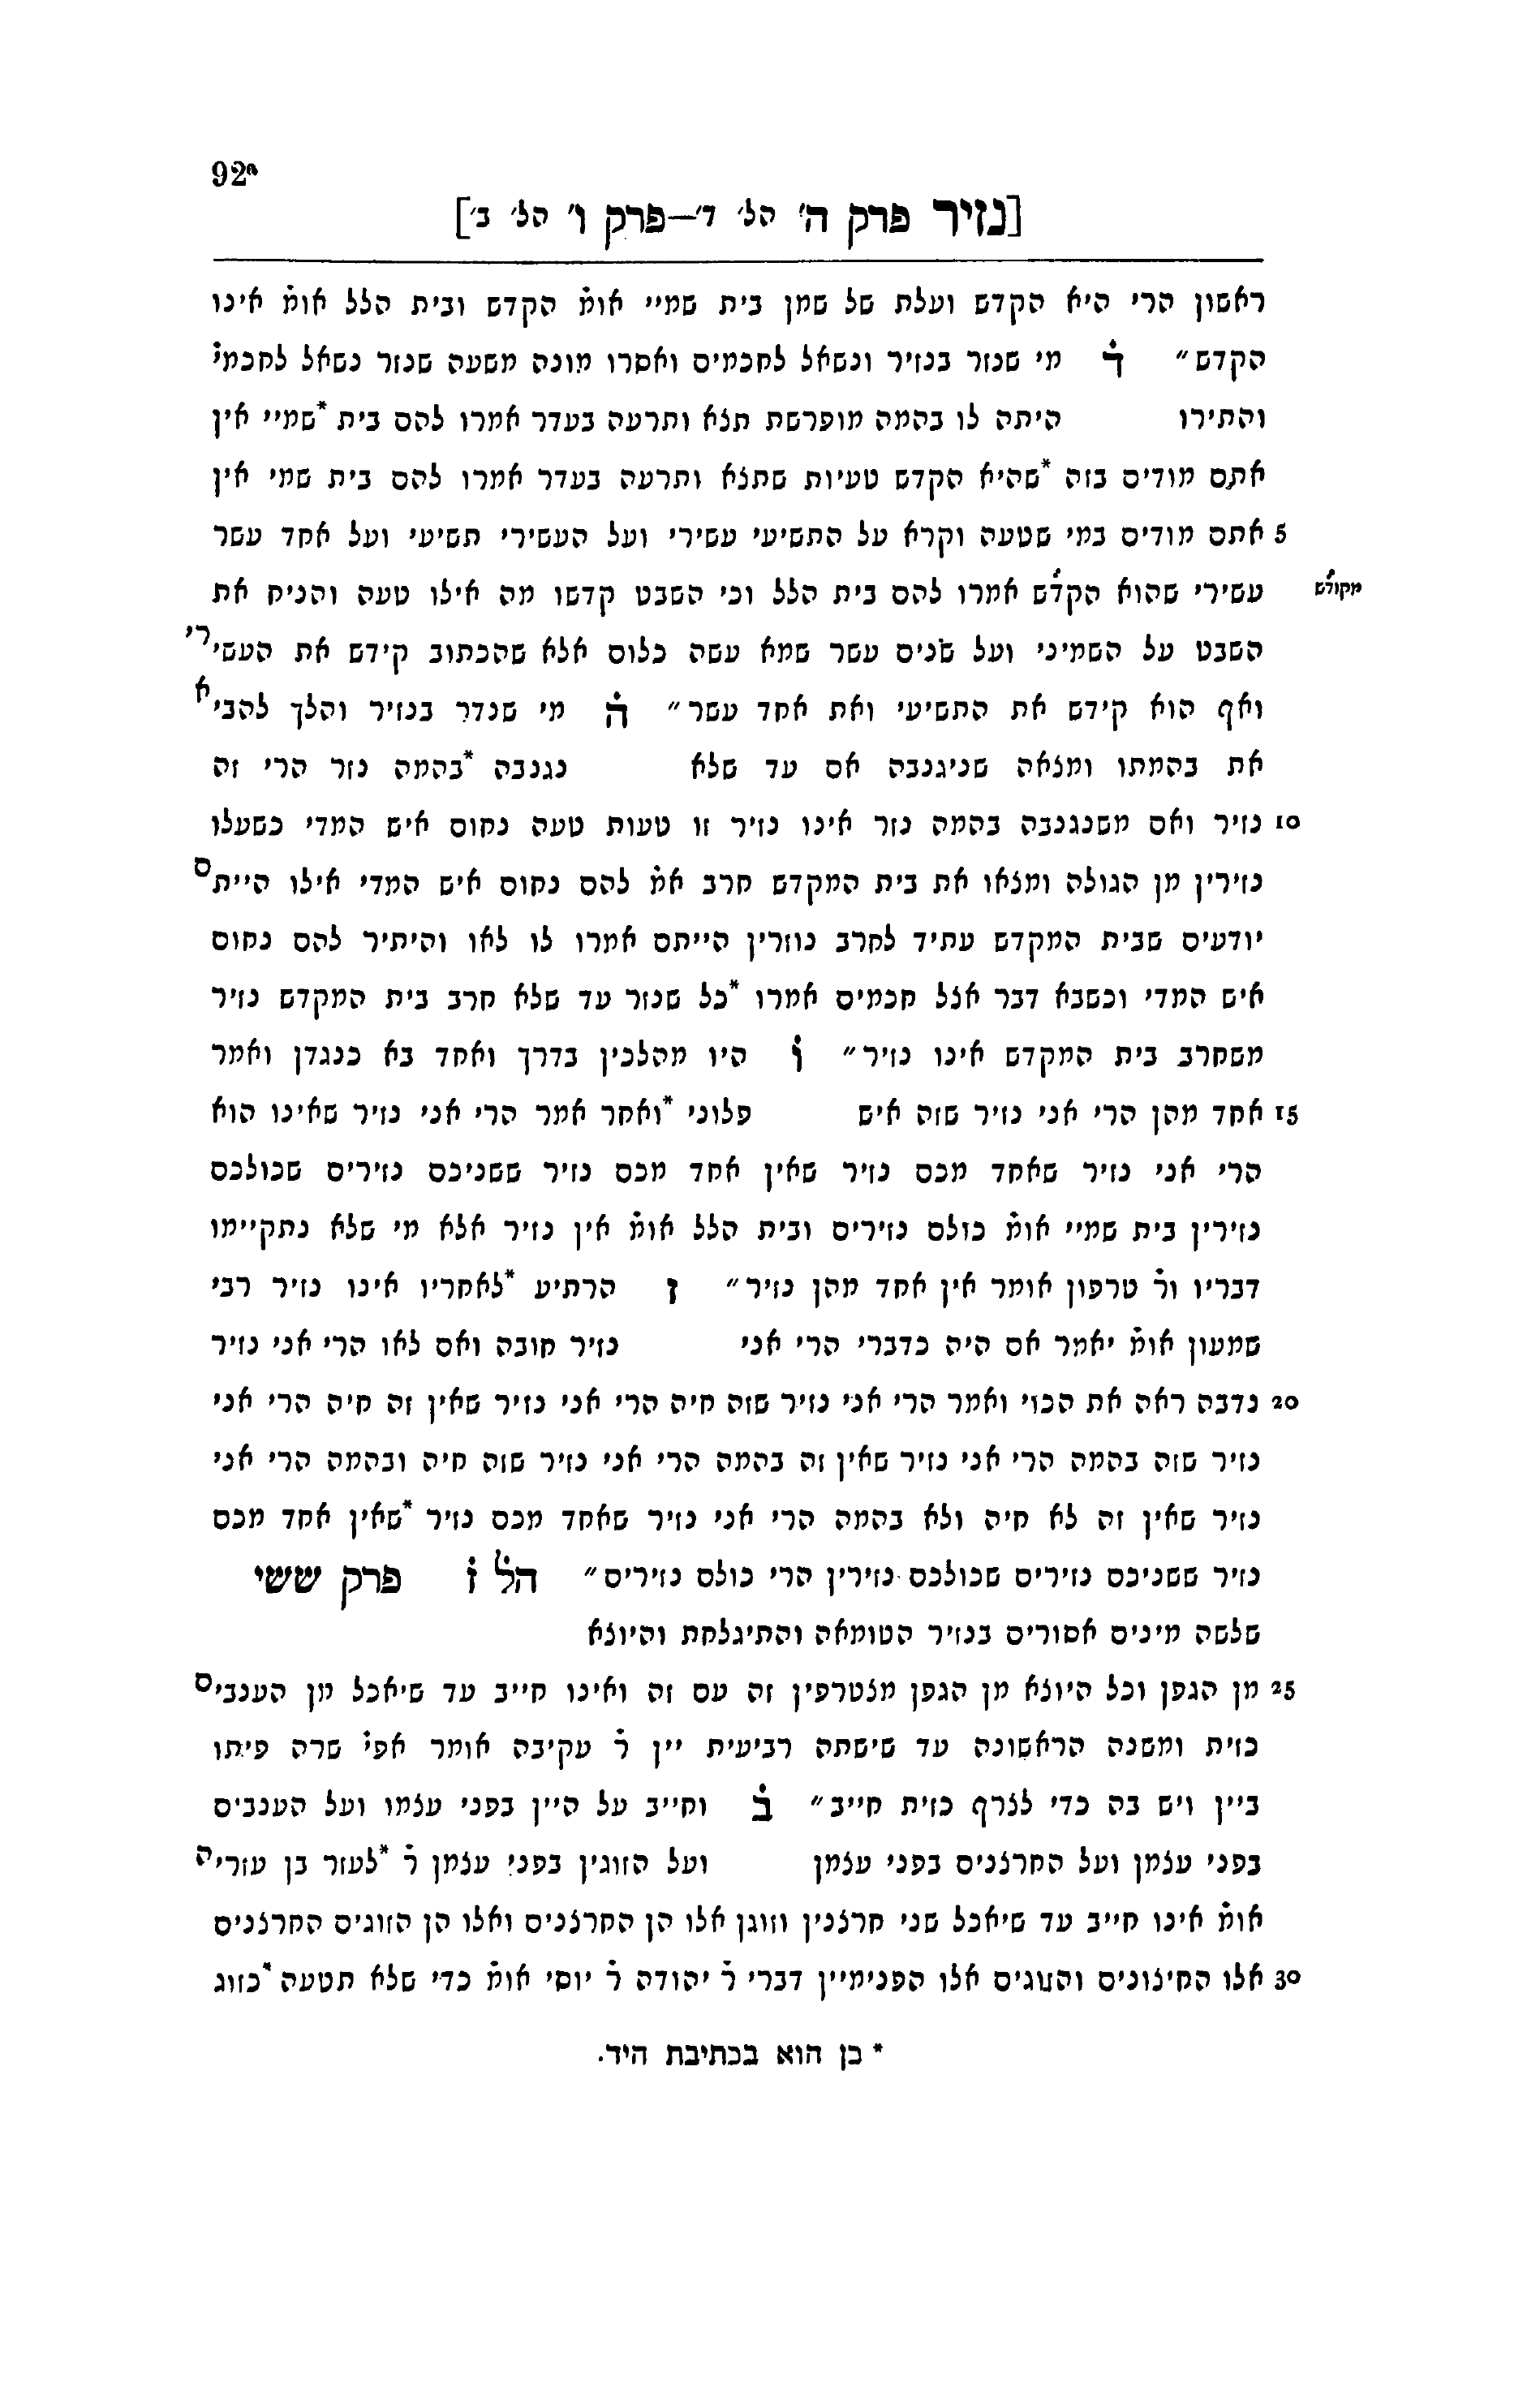 92ᵃ
[נזיר פרק ה' הל' ד'—פרק ו' הל' ב']
ראשון הרי היא הקדש ועלת של שמן בית שמיי אומ̇ הקדש ובית הלל אומ̇ אינו
הקדש״ ד̇ מי שנזר בנזיר ונשאל לחכמים ואסרו מונה משעה שנזר נשאל לחכמי̇
והתירו היתה לו בהמה מופרשת תצא ותרעה בעדר אמרו להם בית *שמיי אין
אתם מודים בזה *שהיא הקדש טעיות שתצא ותרעה בעדר אמרו להם בית שמי אין
5 אתם מודים במי שטעה וקרא על התשיעי עשירי ועל העשירי תשיעי ועל אחד עשר
עשירי שהוא הקדש אמרו להם בית הלל וכי השבט קדשו מה אילו טעה והניח את מקודש
השבט על השמיני ועל שנים עשר שמא עשה כלום אלא שהכתוב קידש את העשירי
ואף הוא קידש את התשיעי ואת אחד עשר״ ה̇ מי שנדר בנזיר והלך להביא
את בהמתו ומצאה שניגנבה אם עד שלא נגנבה *בהמה נזר הרי זה
10 נזיר ואם משנגנבה בהמה נזר אינו נזיר זו טעות טעה נחום איש המדי כשעלו
נזירין מן הגולה ומצאו את בית המקדש חרב אמ̇ להם נחום איש המדי אילו הייתם
יודעים שבית המקדש עתיד לחרב נוזרין הייתם אמרו לו לאו והיתיר להם נחום
איש המדי וכשבא דבר אצל חכמים אמרו *כל שנזר עד שלא חרב בית המקדש נזיר
משחרב בית המקדש אינו נזיר״ ו̇ היו מהלכין בדרך ואחד בא כנגדן ואמר
15 אחד מהן הרי אני נזיר שזה איש פלוני *ואחר אמר הרי אני נזיר שאינו הוא
הרי אני נזיר שאחד מכם נזיר שאין אחד מכם נזיר ששניכם נזירים שכולכם
נזירין בית שמיי אומ̇ כולם נזירים ובית הלל אומ̇ אין נזיר אלא מי שלא נתקיימו
דבריו ור̇ טרפון אומר אין אחד מהן נזיר״ ז הרתיע *לאחריו אינו נזיר רבי
שמעון אומ̇ יאמר אם היה כדברי הרי אני נזיר חובה ואם לאו הרי אני נזיר
20 נדבה ראה את הכוי ואמר הרי אני נזיר שזה חיה הרי אני נזיר שאין זה חיה הרי אני
נזיר שזה בהמה הרי אני נזיר שאין זה בהמה הרי אני נזיר שזה חיה ובהמה הרי אני
נזיר שאין זה לא חיה ולא בהמה הרי אני נזיר שאחד מכם נזיר *שאין אחד מכם
נזיר ששניכם נזירים שכולכם נזירין הרי כולם נזירים״ הל̇ ז̇ פרק ששי
שלשה מינים אסורים בנזיר הטומאה והתיגלחת והיוצא
25 מן הגפן וכל היוצא מן הגפן מצטרפין זה עם זה ואינו חייב עד שיאכל מן הענבים
כזית ומשנה הראשונה עד שישתה רביעית יין ר̇ עקיבה אומר אפי̇ שרה פיתו
ביין ויש בה כדי לצרף כזית חייב״ ב̇ וחייב על היין בפני עצמו ועל הענבים
בפני עצמן ועל החרצנים בפני עצמן ועל הזוגין בפני עצמן ר̇ *לעזר בן עזריה
אומ̇ אינו חייב עד שיאכל שני חרצנין וזוגן אלו הן החרצנים ואלו הן הזוגים החרצנים
30 אלו החיצונים והזוגים אלו הפנימיין דברי ר̇ יהודה ר̇ יוסי אומ̇ כדי שלא תטעה *כזוג
* כן הוא בכתיבת היד.